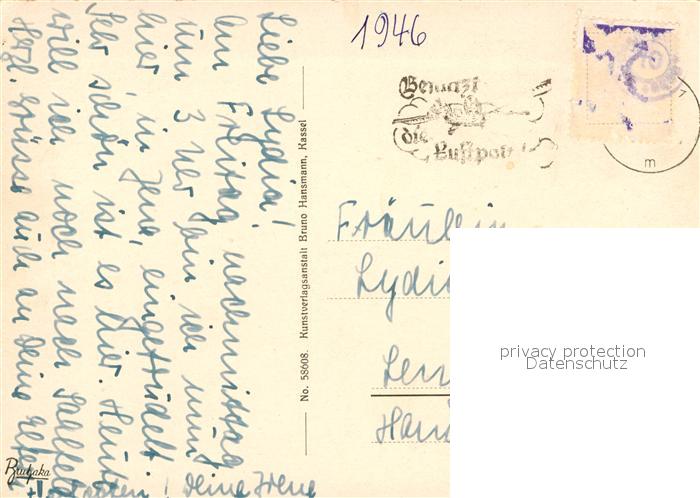 1946
Benutzt
die
Luftpost
Liebe Lydia!
Am Freitag nachmittag
um 3 Uhr bin ich nun
hier in Jena eingetrudelt
Sehr schön ist es hier. Heute
will ich noch nach Saalfeld
Herzl. Grüsse auch an Deine
Deine Irene
No. 58608. Kunstverlagsanstalt Bruno Hansmann, Kassel
Fräulein
Lydia
privacy protection
Datenschutz
m